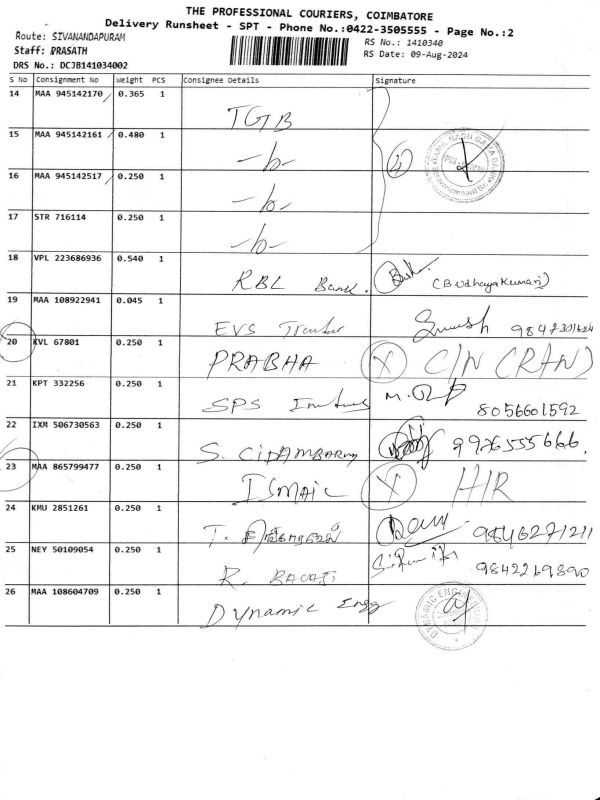 THE PROFESSIONAL COURIERS, COIMBATORE
Delivery Runsheet - SPT - Phone No.:0422-3505555 - Page No.:2
Route: SIVANANDAPURAM
RS No.: 1410340
Staff: PRASATH
RS Date: 09-Aug-2024
DRS No.: DCJB141034002
S No Consignment No Weight PCS Consignee Details Signature
14 MAA 945142170 0.365 1 TGB
15 MAA 945142161 0.480 1 4
16 MAA 945142517 0.250 1
17 STR 716114 0.250 1
18 VPL 223686936 0.540 1 RBL Bank. (B Udhayakumar)
19 MAA 108922941 0.045 1 EVS
20 KVL 67801 0.250 1 PRABHA X C/N (RAN)
21 KPT 332256 0.250 1 SPS 8056601592
22 IXM 506730563 0.250 1 S. CIDAMBARAM 9976555666.
23 MAA 865799477 0.250 1 ISMAIL X
24 KMU 2851261 0.250 1 T. 9846271211
25 NEY 50109054 0.250 1 R. BALAJI 9842269890
26 MAA 108604709 0.250 1 DYNAMIC Engg